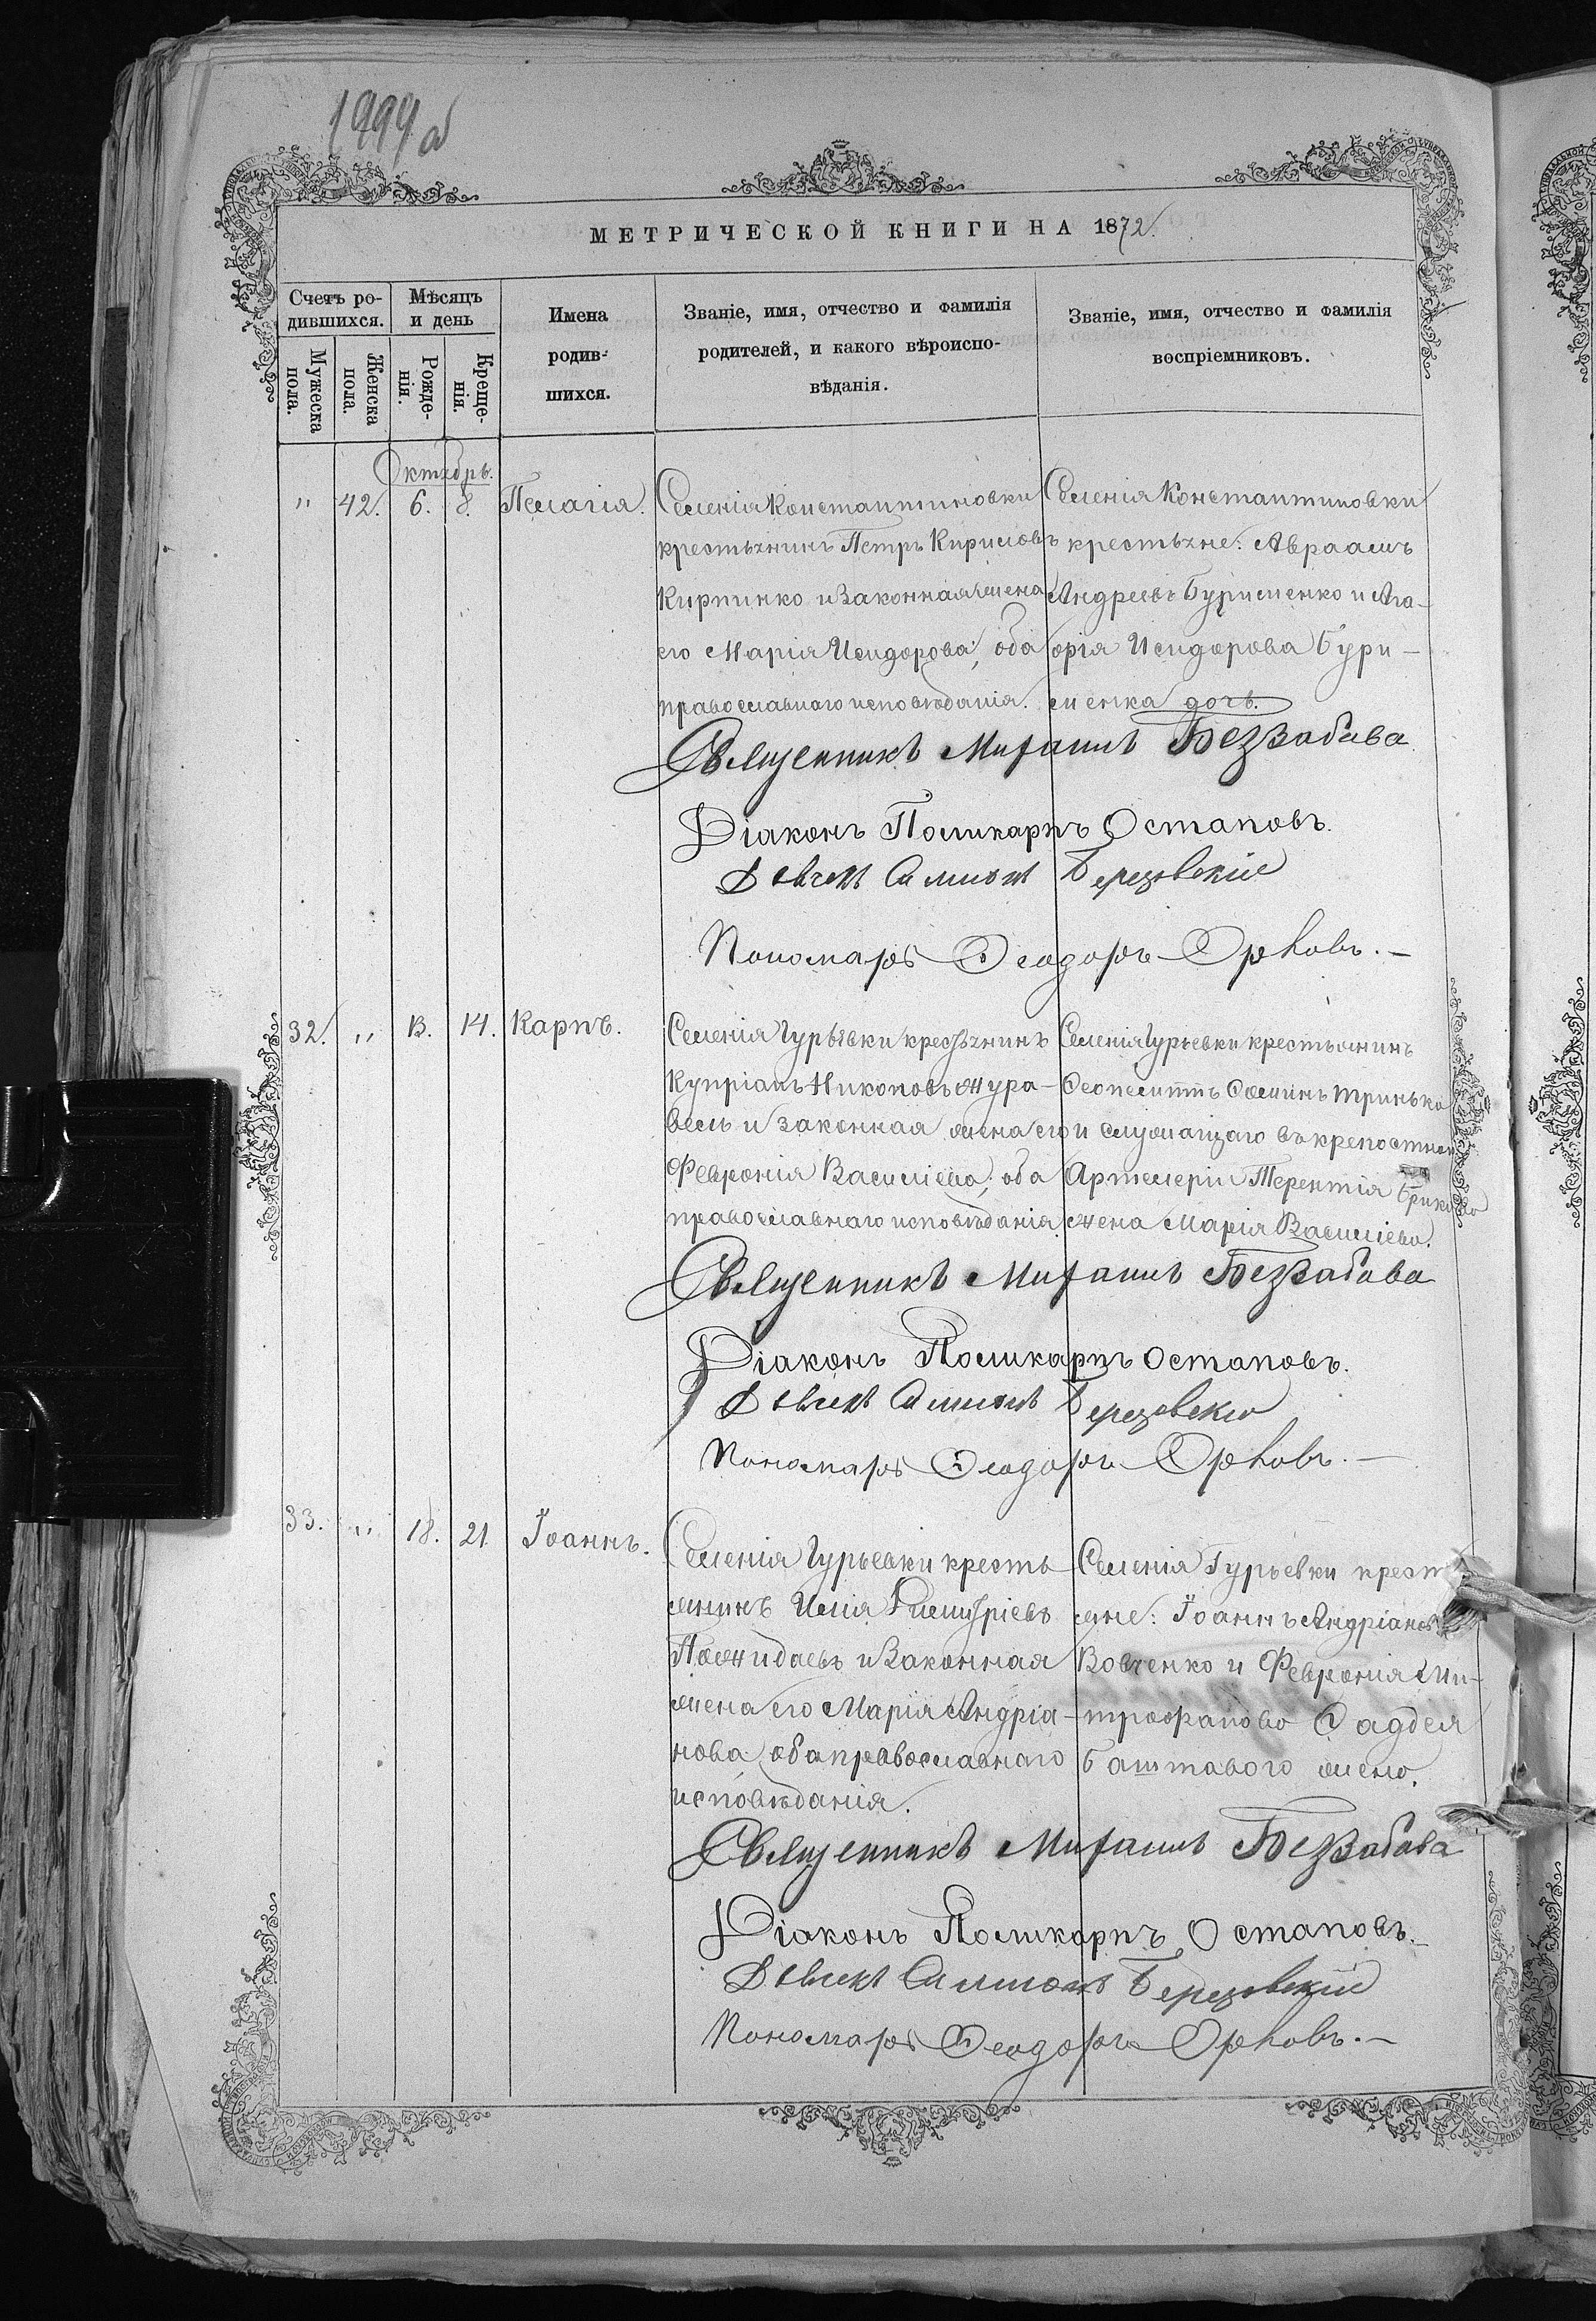 1999 об
МЕТРИЧЕСКОЙ КНИГИ НА 1872.
Счетъ ро-
дившихся.
Мѣсяцъ
и день
Мужеска
пола.
Женска
пола.
Рожде-
нія.
Креще-
нія.
Имена
родив-
шихся.
Званіе, имя, отчество и фамилія
родителей, и какого вѣроиспо-
вѣданія.
Званіе, имя, отчество и фамилія
воспріемниковъ.
Октябрь.
" 42. 6. 8. Пелагія.
Селенія Константиновки
крестьянинъ Петръ Кириловъ
Кирпинко и законная жена
его Марія Исидорова, оба
православнаго исповѣданія.
Селенія Константиновки
крестьяне: Авраамъ
Андреевъ Бурименко и Ага-
фія Исидорова Бури-
менка дочь.
Священникъ Михаилъ Беззабава
Діаконъ Поликарпъ Остаповъ.
Дьячекъ Симеонъ Березовскій
Пономарь Ѳеодоръ Орловъ.—
32. " 13. 14. Карпъ.
Селенія Гурьевки крестьянинъ
Купріанъ Никоновъ Жура-
вель и законная жена его
Февронія Василіева, оба
православнаго исповѣданія.
Селенія Гурьевки крестьянинъ
Ѳеопемптъ Ѳоминъ Тринько
и служащаго въ крепостной
Артилеріи Терентія
жена Марія Василіева.
Священникъ Михаилъ Беззабава
Діаконъ Поликарпъ Остаповъ.
Дьячекъ Симеонъ Березовскій
Пономарь Ѳеодоръ Орловъ.—
33. " 18. 21. Іоаннъ.
Селенія Гурьевки кресть-
янинъ Илія Димитріевъ
Пожидаевъ и законная
жена его Марія Андріа-
нова, оба православнаго
исповѣданія.
Селенія Гурьевки крест
яне: Іоаннъ Андріановъ
Вовченко и Феврónія Ми-
трофанова Ѳаддея
Баштавого жена.
Священникъ Михаилъ Беззабава
Діаконъ Поликарпъ Остаповъ.—
Дьячекъ Симеонъ Березовскій
Пономарь Ѳеодоръ Орловъ.—